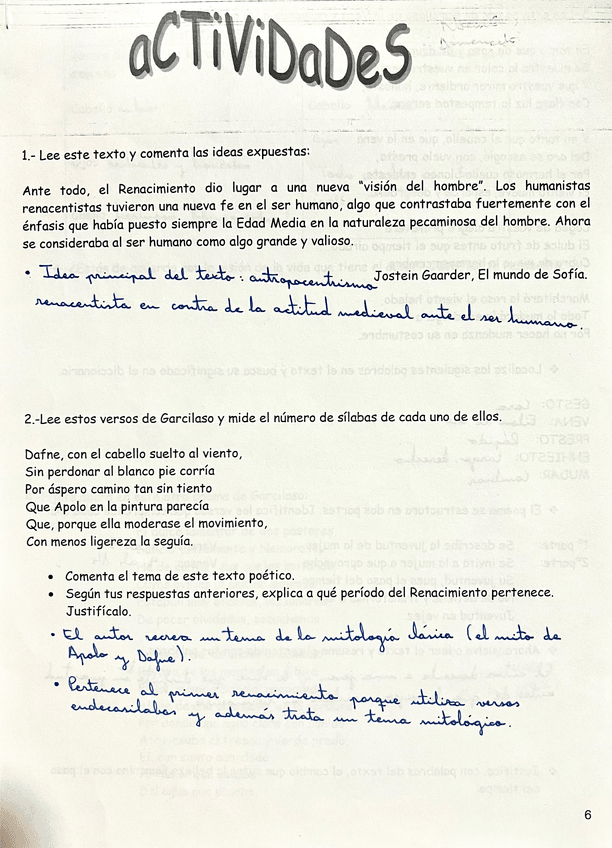 aCTiViDaDeS
1.- Lee este texto y comenta las ideas expuestas:
Ante todo, el Renacimiento dio lugar a una nueva “visión del hombre”. Los humanistas
renacentistas tuvieron una nueva fe en el ser humano, algo que contrastaba fuertemente con el
énfasis que había puesto siempre la Edad Media en la naturaleza pecaminosa del hombre. Ahora
se consideraba al ser humano como algo grande y valioso.
Jostein Gaarder, El mundo de Sofía.
• Idea principal del texto: antropocentrismo
renacentista en contra de la actitud medieval ante el ser humano.
2.-Lee estos versos de Garcilaso y mide el número de sílabas de cada uno de ellos.
Dafne, con el cabello suelto al viento,
Sin perdonar al blanco pie corría
Por áspero camino tan sin tiento
Que Apolo en la pintura parecía
Que, porque ella moderase el movimiento,
Con menos ligereza la seguía.
• Comenta el tema de este texto poético.
• Según tus respuestas anteriores, explica a qué período del Renacimiento pertenece.
Justifícalo.
• El autor recrea un tema de la mitología clásica (el mito de
Apolo y Dafne).
• Pertenece al primer renacimiento porque utiliza versos
endecasílabos y además trata un tema mitológico.
6